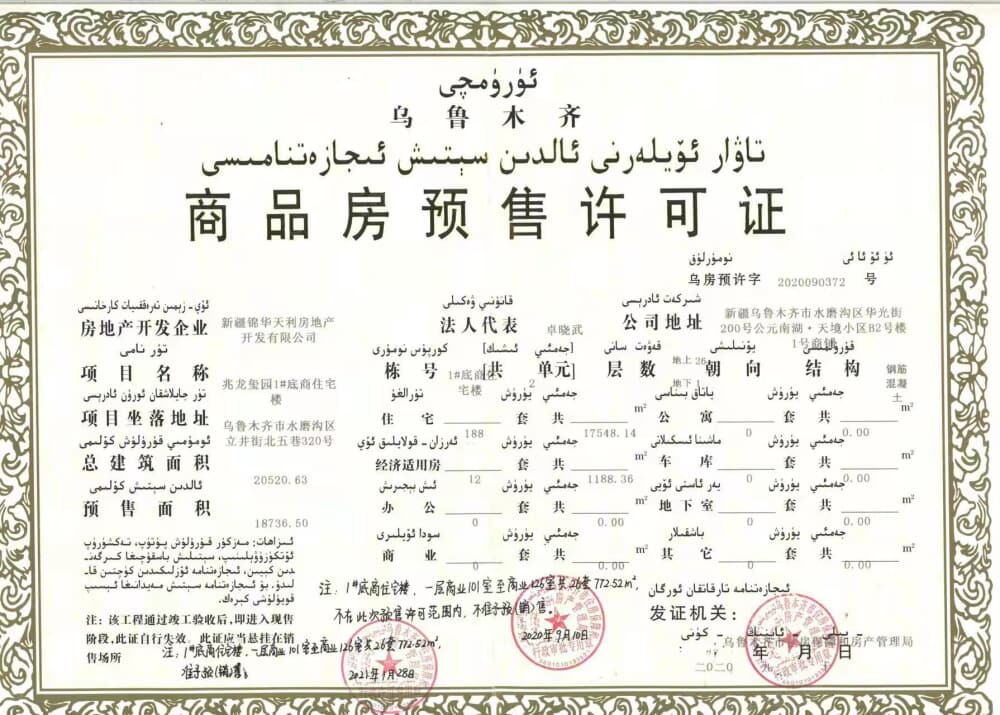 ئۈرۈمچى
乌鲁木齐
تاۋار ئۆيلەرنى ئالدىن سېتىش ئىجازەتنامىسى
商品房预售许可证
ئۈ ئۆ ئا ئى نومۇرلۇق
乌房预许字 2020090372 号
ئۆي - زېمىن تەرەققىيات كارخانىسى
房地产开发企业 新疆锦华天利房地产开发有限公司
قانۇنىي ۋەكىلى
法人代表 卓晓武
شىركەت ئادرېسى
公司地址 新疆乌鲁木齐市水磨沟区华光街200号公元南湖·天境小区B2号楼1号商铺
تۈر نامى
项目名称 兆龙玺园1#底商住宅楼
كورپۇس نومۇرى [جەمئىي ئىشىك]
栋号 1#底商住宅楼 [共 2 单元]
قەۋەت سانى
层数 地上 26 地下 1
يۆنىلىشى
朝向
قۇرۇلمىسى
结构 钢筋混凝土
تۈر جايلاشقان ئورۇن ئادرېسى
项目坐落地址 乌鲁木齐市水磨沟区立井街北五巷320号
تۇرالغۇ جەمئىي يۈرۈش
住宅 188 套 共 17548.14 m²
ياتاق بىناسى جەمئىي يۈرۈش
公寓 0 套 共 0.00 m²
ئومۇمىي قۇرۇلۇش كۆلىمى
总建筑面积 20520.63
ئەرزان - قولايلىق ئۆي جەمئىي يۈرۈش
经济适用房 12 套 共 1188.36 m²
ماشىنا ئىسكىلاتى جەمئىي يۈرۈش
车库 0 套 共 0.00 m²
ئالدىن سېتىش كۆلىمى
预售面积 18736.50
ئىش بېجىرىش جەمئىي يۈرۈش
办公 0 套 共 0.00 m²
يەر ئاستى ئۆيى جەمئىي يۈرۈش
地下室 0 套 共 0.00 m²
سودا ئۆيلىرى جەمئىي يۈرۈش
商业 0 套 共 0.00 m²
باشقىلار جەمئىي يۈرۈش
其它 0 套 共 0.00 m²
ئىزاھات: مەزكۇر قۇرۇلۇش پۈتۈپ، تەكشۈرۈپ
ئۆتكۈزۈۋېلىنىپ، سېتىلىش باسقۇچىغا كىرگەن-
دىن كېيىن، ئىجازەتنامە ئۆزلۈكىدىن كۈچتىن قا-
لىدۇ. بۇ ئىجازەتنامە سېتىش مەيدانىغا ئېسىپ
قويۇلۇشى كېرەك.
注：该工程通过竣工验收后，即进入现售
阶段，此证自行失效。此证应当悬挂在销
售场所
注：1#底商住宅楼，一层商业101室至商业126室共26套772.52m²，
不在此次预售许可范围内，不准予预(销)售。
2020年9月10日
注：1#底商住宅楼，一层商业101室至商业126室共26套772.52m²，
准予预(销)售。
2021年1月28日
ئىجازەتنامە تارقاتقان ئورگان
发证机关：
يىلى ئاينىڭ كۈنى
年 月 日
二〇二〇